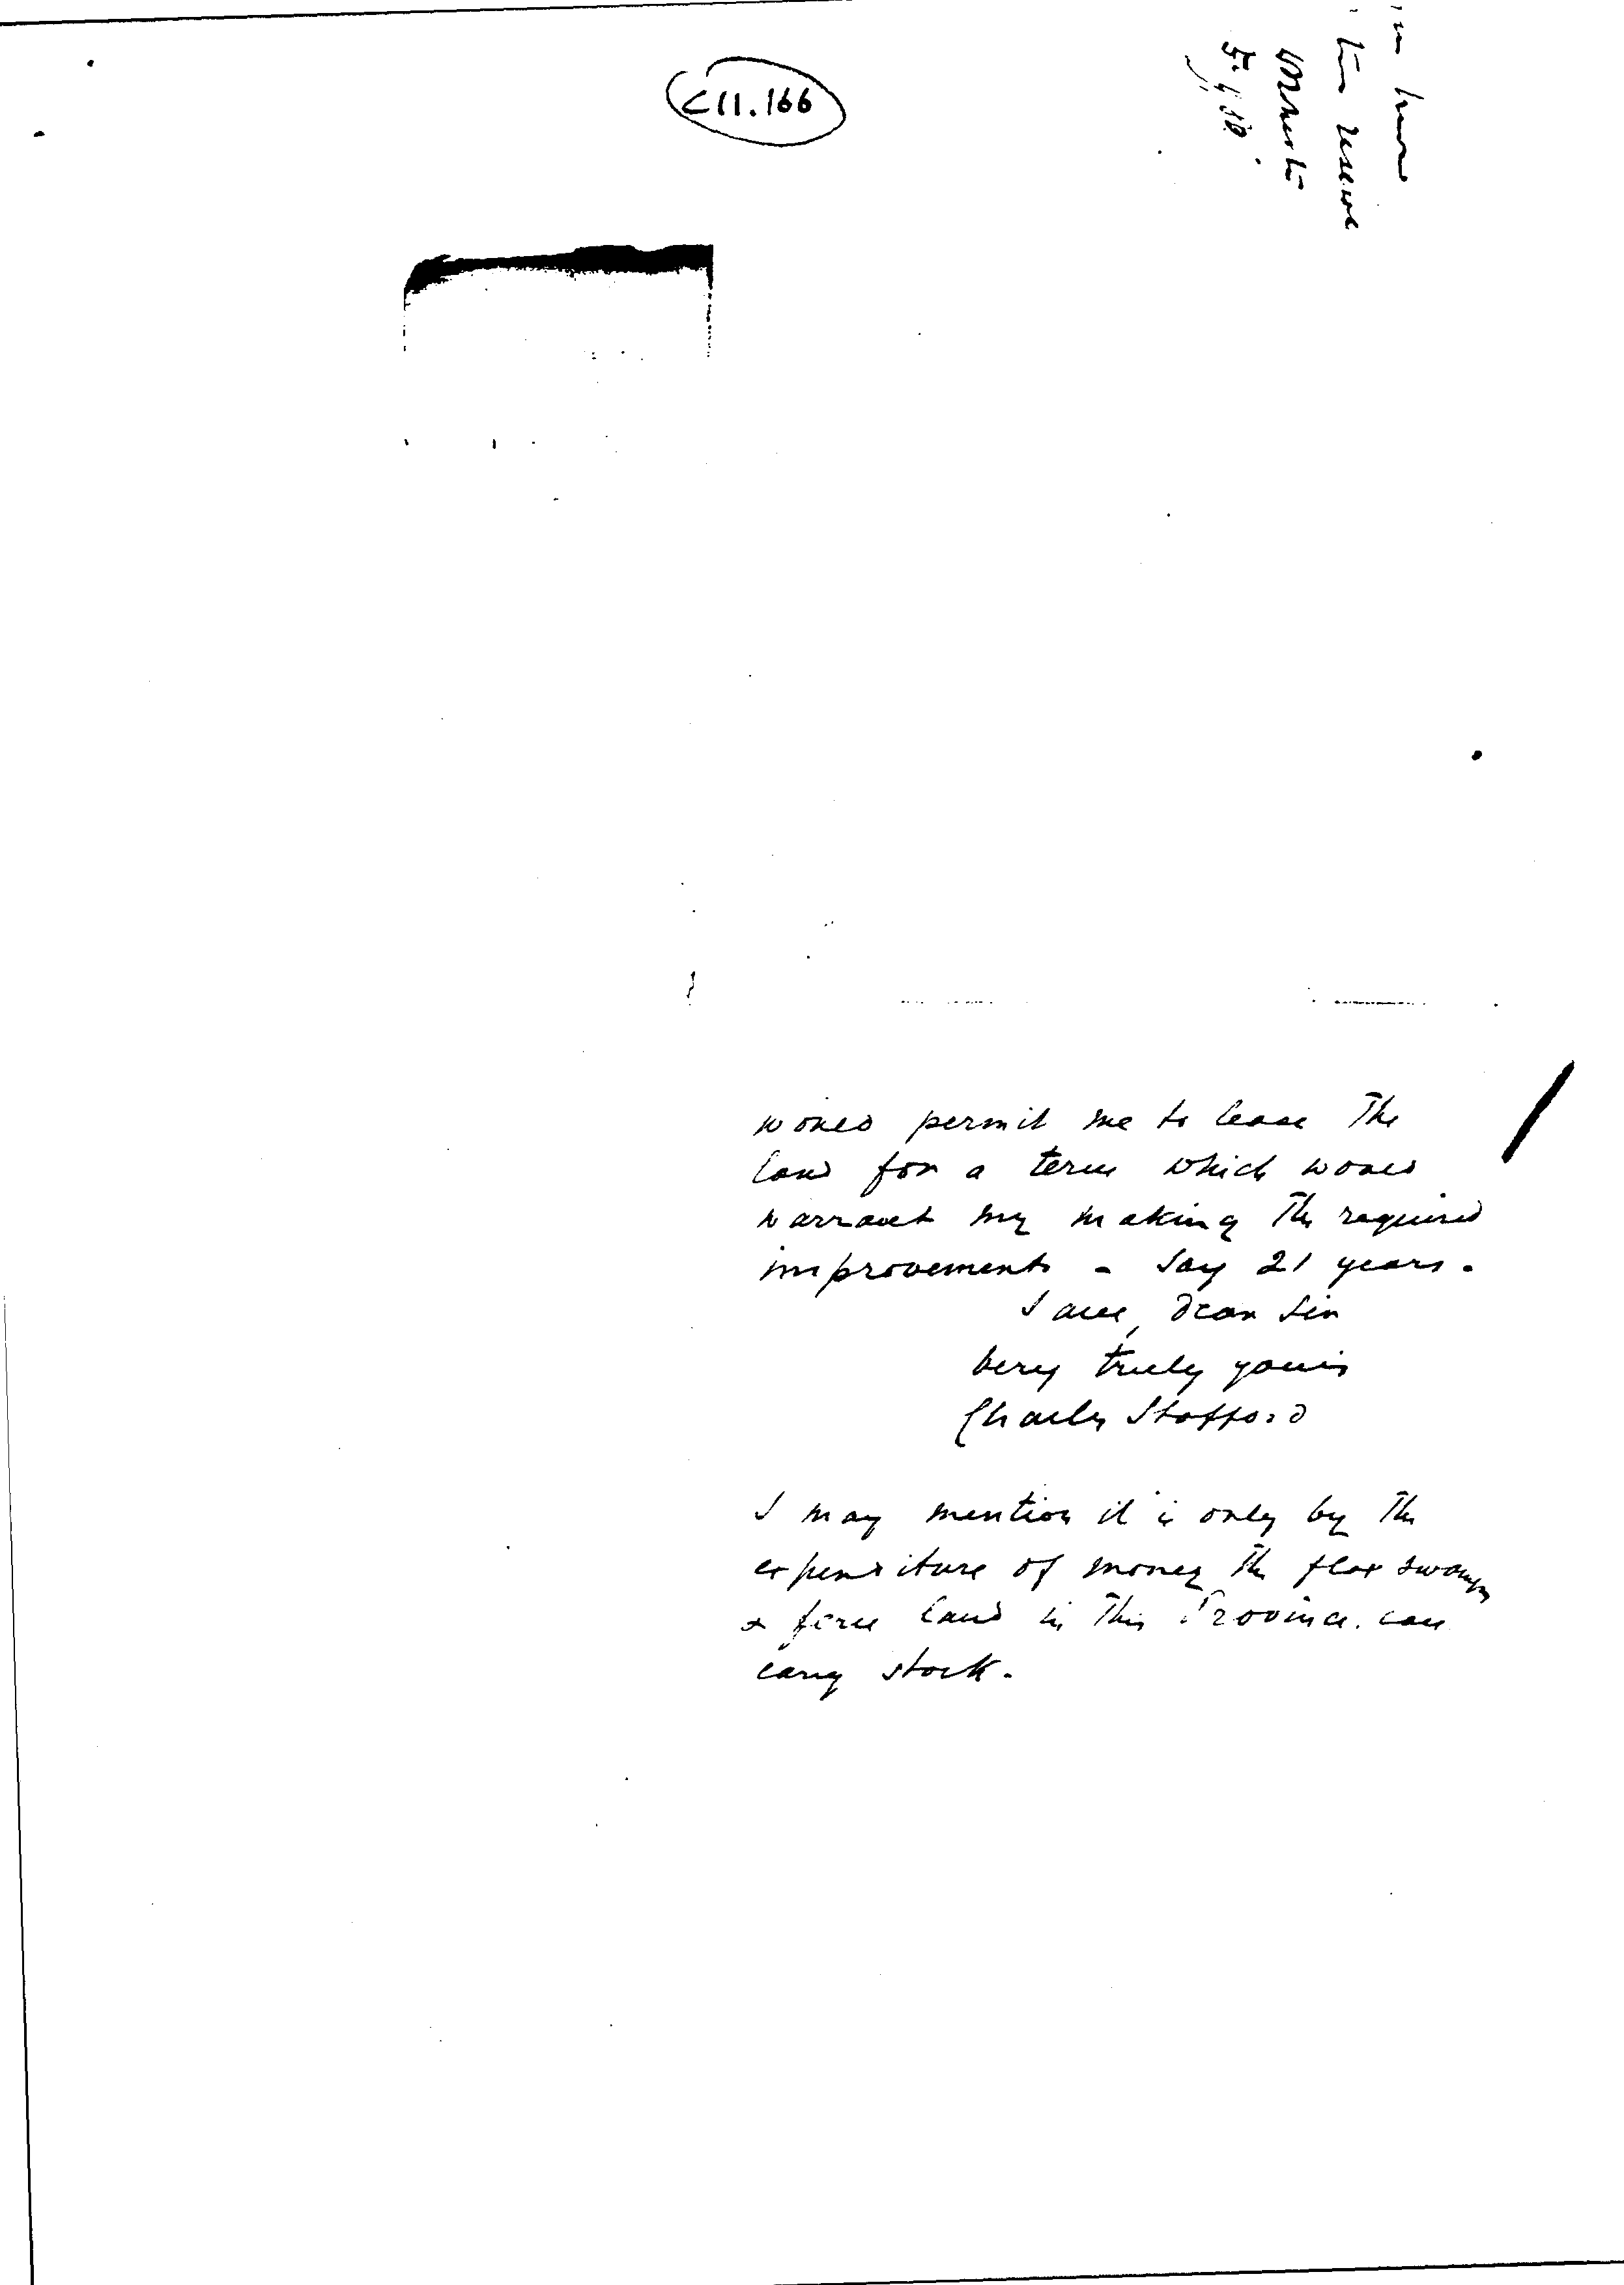 C11.166
this reserve
would permit me to lease the
land for a term which would
warrant my making the required
improvements - say 21 years.
I am, Dear Sir
Very truly yours
Charles Stafford
I may mention it is only by the
expenditure of money the flax swamps
& fern land in this Province can
carry stock.